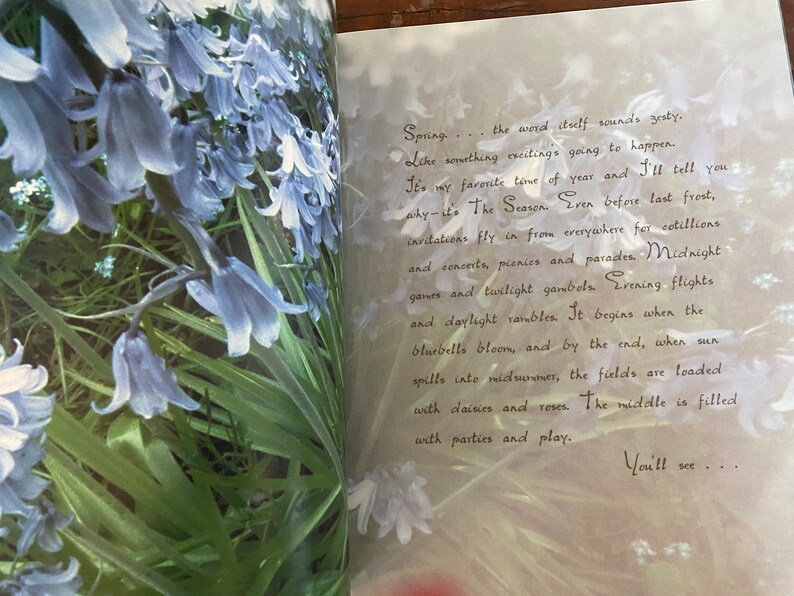 Spring. . . . the word itself sounds zesty.
Like something exciting's going to happen.
It's my favorite time of year and I'll tell you
why—it's The Season. Even before last frost,
invitations fly in from everywhere for cotillions
and concerts, picnics and parades. Midnight
games and twilight gambols. Evening flights
and daylight rambles. It begins when the
bluebells bloom, and by the end, when sun
spills into midsummer, the fields are loaded
with daisies and roses. The middle is filled
with parties and play.
You'll see . . .